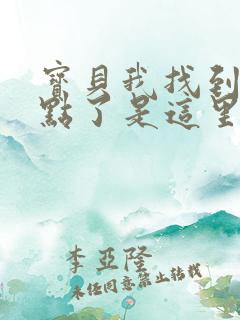 寶貝我找到
點了是這里
李亞隆
未任同意禁止转载